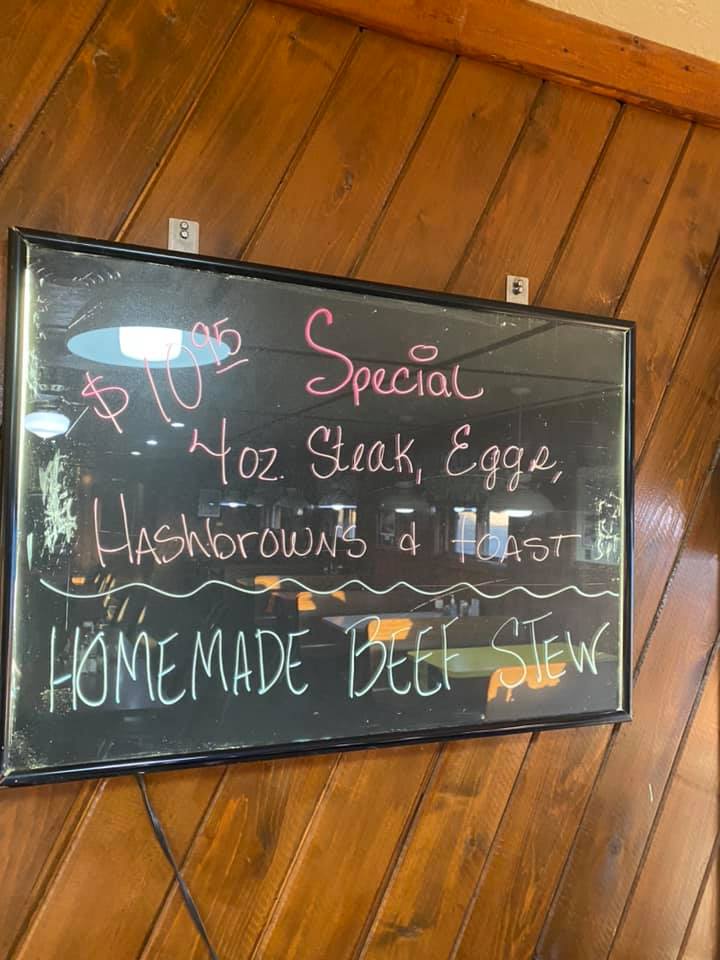 $10.95 Special
4oz. Steak, Eggs,
HAShbrOWNS & tOAST
HOMEMADE BEEF STEW